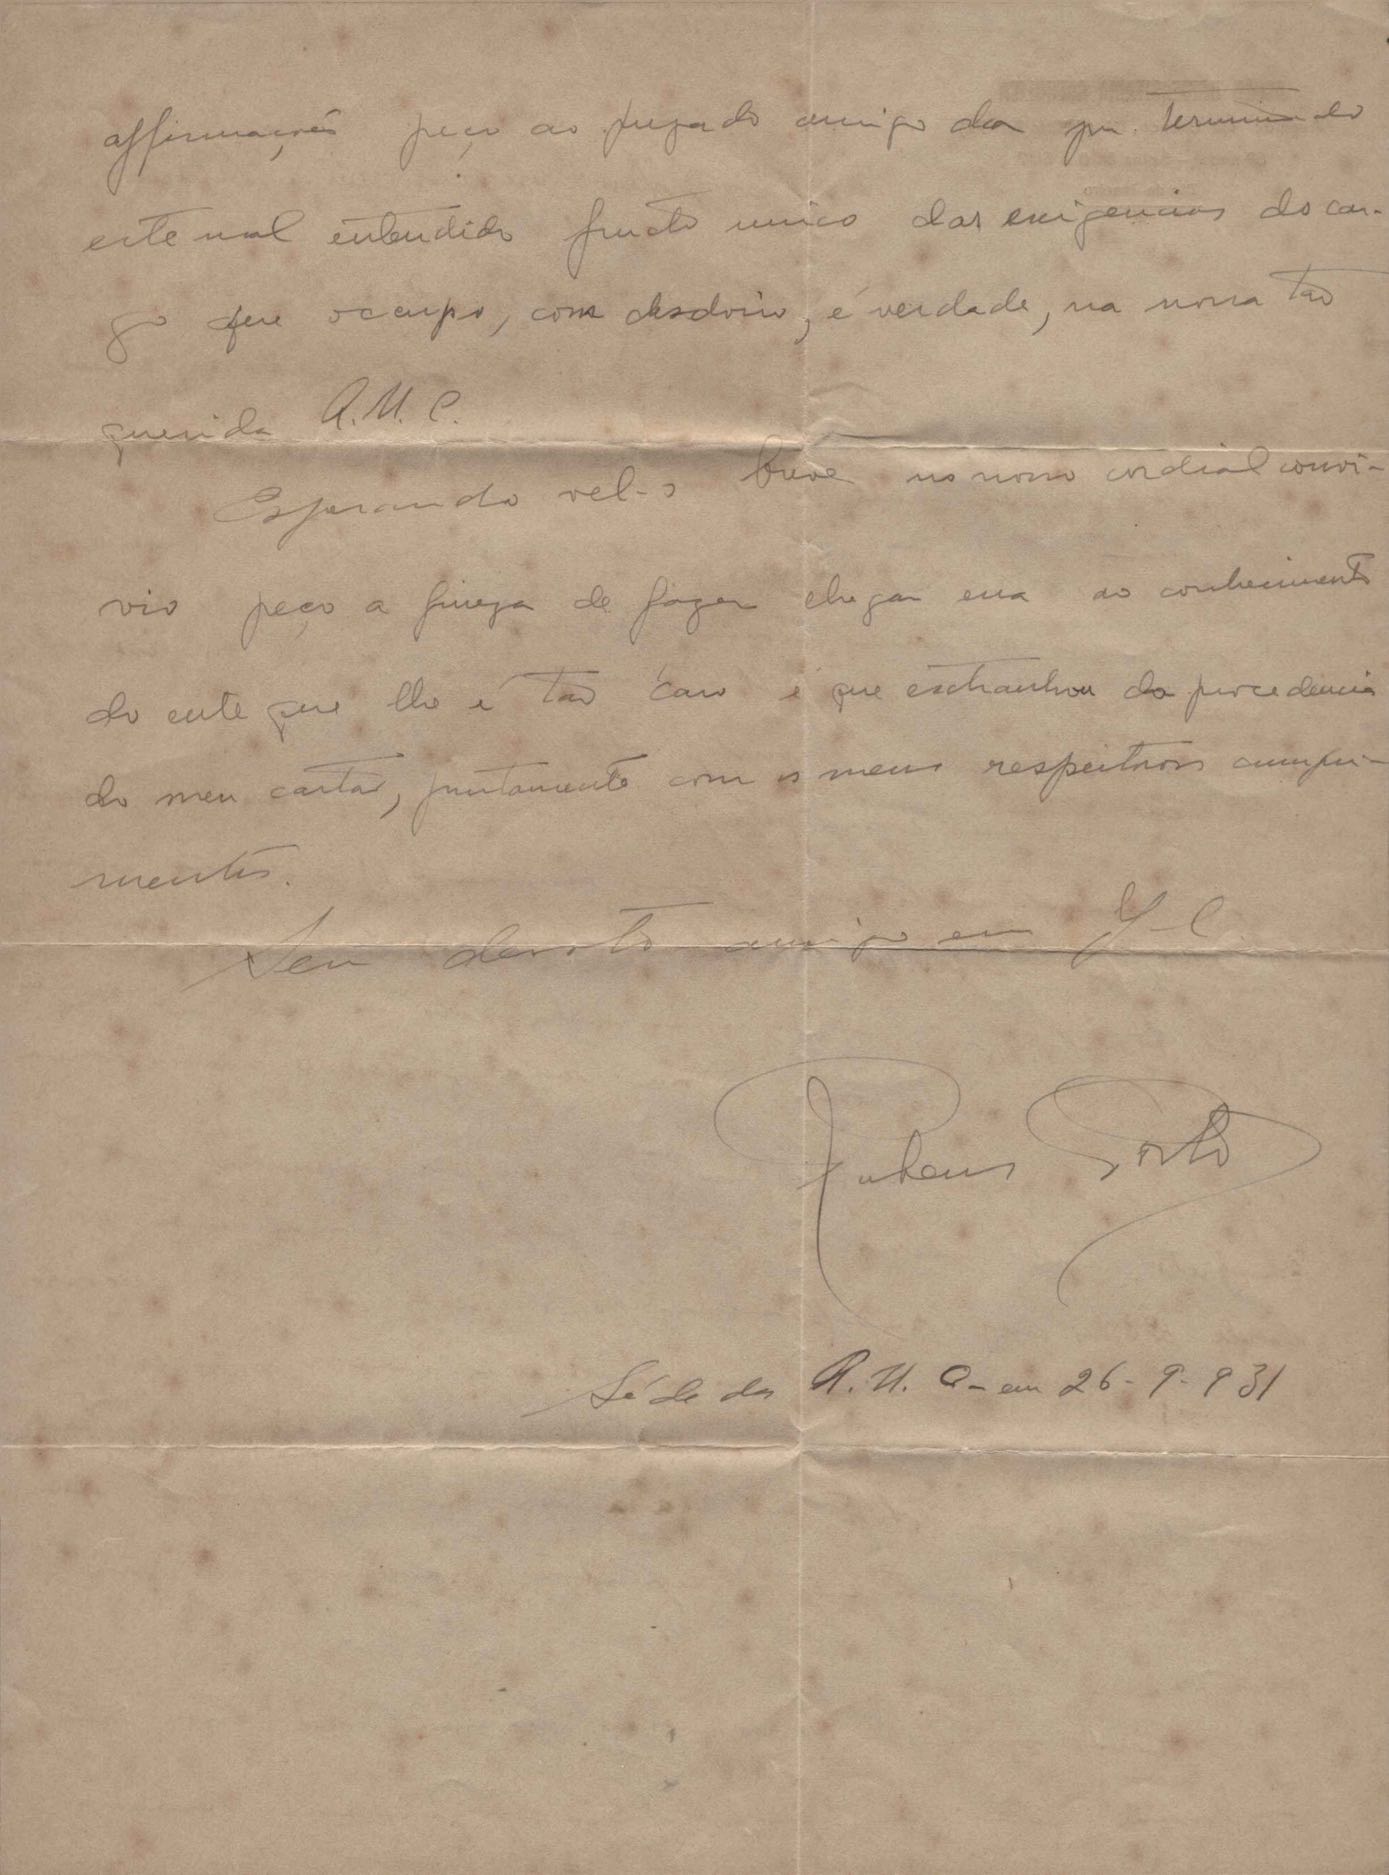 affirmações peço ao prezado amigo dar por terminado
este mal entendido fructo unico das exigencias do car-
go que occupo, com desdoiro, é verdade, na nossa tão
querida A.U.C.
Esperando vel-o breve no nosso cordial convi-
vio peço a fineza de fazer chegar essa ao conhecimento
do ente que lhe é tão caro e que extranhou da procedencia
do meu cartão, juntamente com os meus respeitosos cumpri-
mentos.
Seu devoto amigo em J-C
Rubens Porto
Séde da A.U.C- em 26-9-931